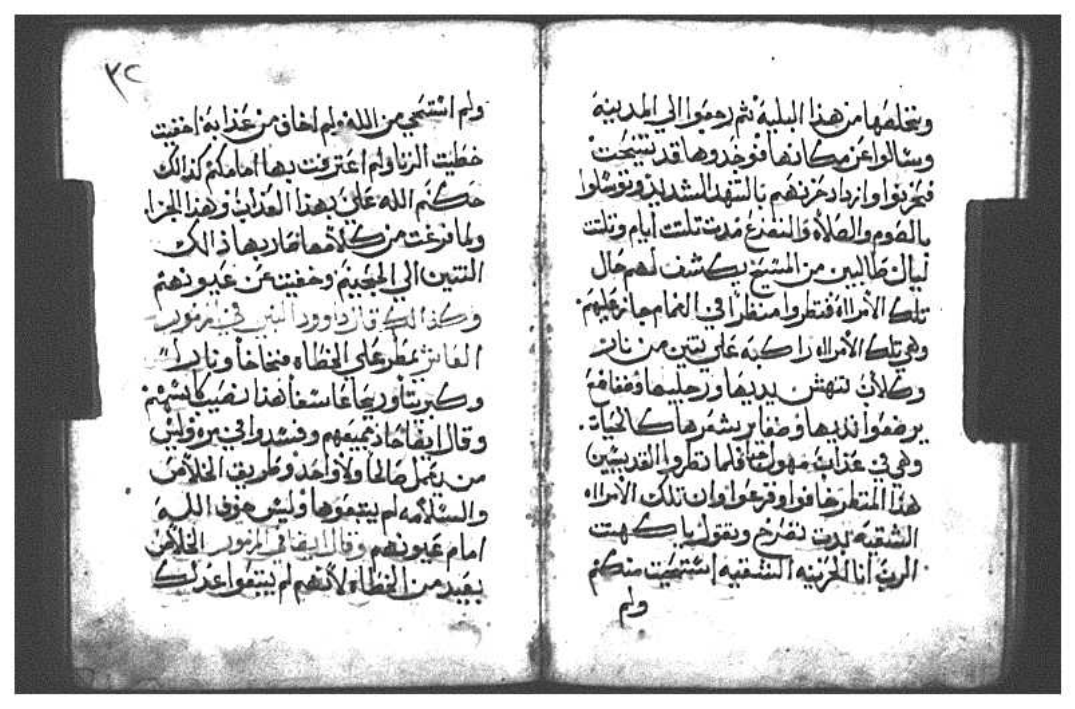 ويخلصها من هذا البلية ثم رجعوا الي المدينة
وسالوا عن مكانها فوجدوها قد تنيحت
فحزنوا وازداد حزنهم بالتنهد الشديد وتوسلوا
بالصوم والصلاة والتضرع مدت تلتت ايام وتلتت
ليال طالبين من المسيح يكشف لهم حال
تلك الامراه فنظروا منظرا في المنام جاز عليهم
وهي تلك الامراه راكبه علي تنين من نار
وكلاب تنهش يديها ورجليها وضفادع
يرضعوا تديها وضفاير شعرها كالحيات
وهي في عذاب مهول جدا فلما نظروا القديسين
هذا المنظر خافوا وفزعوا وان تلك الامراه
الشقيه بدت تصرخ وتقول يا كهنت
الرب انا الحزينه الشقيه استحيت منكم
ولم
٣٢
ولم استحي من الله ولم اخاف من عذابه اخفيت
خطيت الزنا ولم اعترفت بها امامكم كذالك
حكم الله علي بهذا العذاب وهذا الجزا
ولما فرغت من كلامها طار بها ذالك
التنين الي الجحيم وخفيت عن عيونهم
وكذالك قال داوود النبي في المزمور
العاشر يمطر علي الخطاه فخاخا ونارا
وكبريتا وريحا عاصفا هذا نصيب كاسهم
وقال ايضا حاد جميعهم وفسدوا في مره وليس
من يعمل صالحا ولا واحد وطريق الخلاص
والسلامه لم يتبعوها وليس خوف الله
امام عيونهم وقال ايضا في المزمور الخلاص
بعيد من الخطاه لانهم لم يبتغوا عدلك